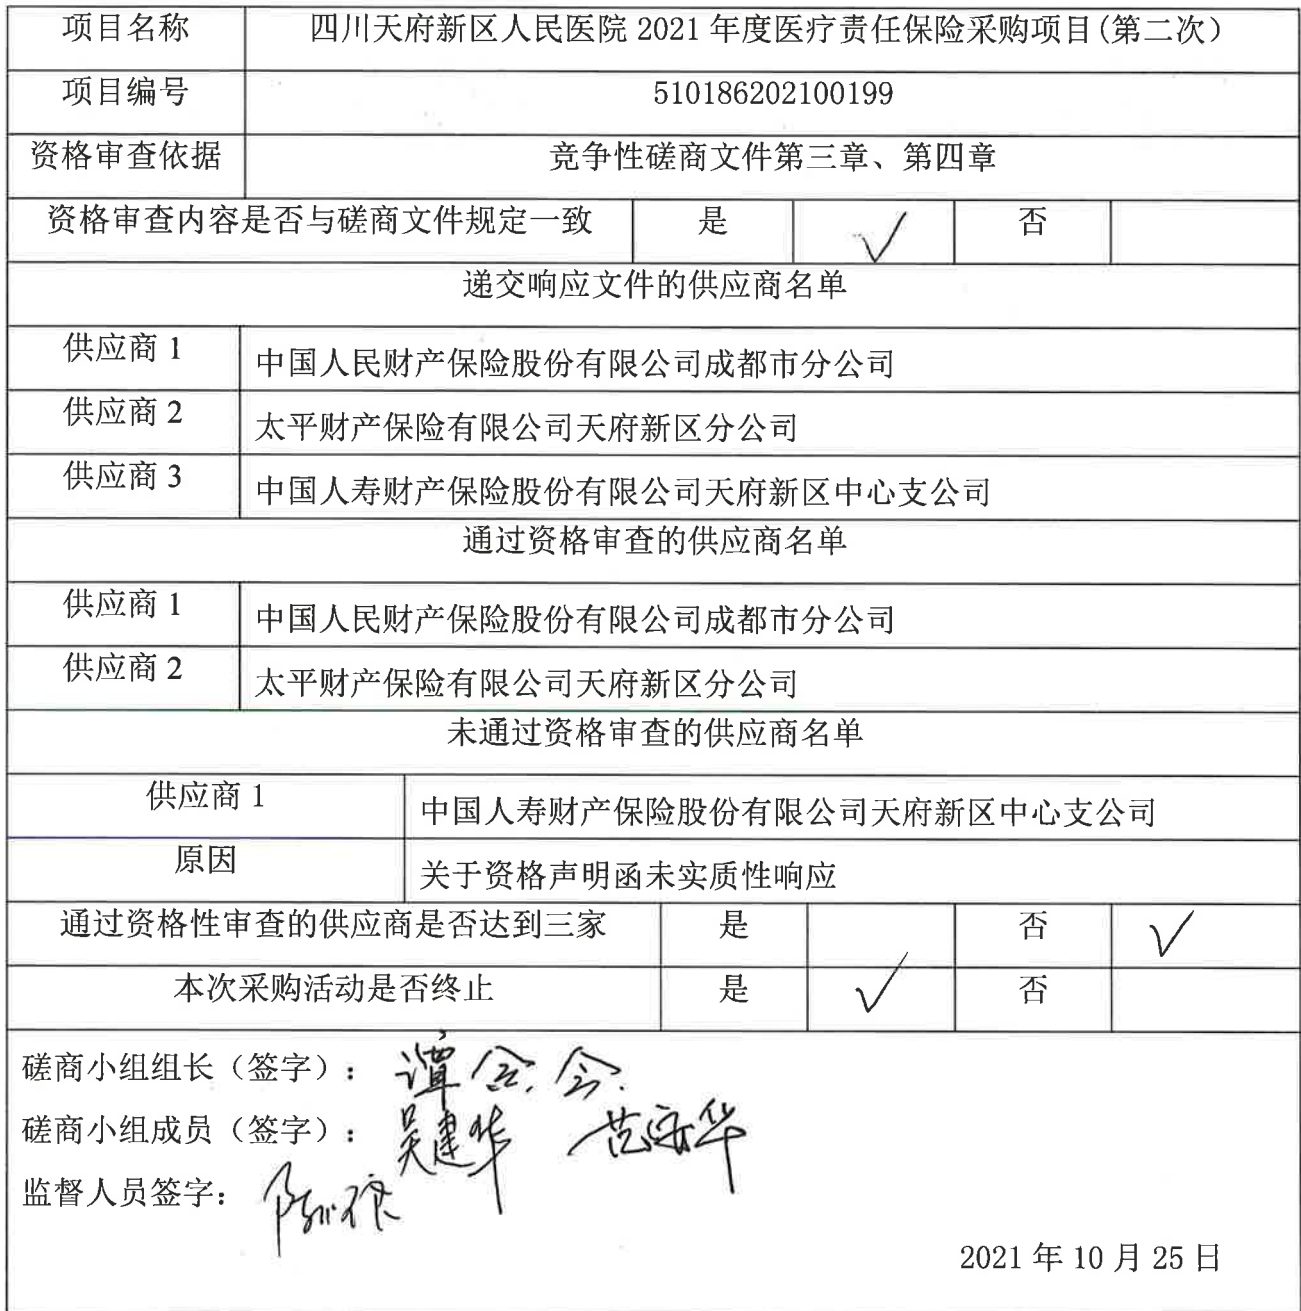 项目名称 四川天府新区人民医院 2021 年度医疗责任保险采购项目(第二次）
项目编号 510186202100199
资格审查依据 竞争性磋商文件第三章、第四章
资格审查内容是否与磋商文件规定一致 是 √ 否
递交响应文件的供应商名单
供应商 1 中国人民财产保险股份有限公司成都市分公司
供应商 2 太平财产保险有限公司天府新区分公司
供应商 3 中国人寿财产保险股份有限公司天府新区中心支公司
通过资格审查的供应商名单
供应商 1 中国人民财产保险股份有限公司成都市分公司
供应商 2 太平财产保险有限公司天府新区分公司
未通过资格审查的供应商名单
供应商 1 中国人寿财产保险股份有限公司天府新区中心支公司
原因 关于资格声明函未实质性响应
通过资格性审查的供应商是否达到三家 是 否 √
本次采购活动是否终止 是 √ 否
磋商小组组长（签字）： 谭会会
磋商小组成员（签字）： 吴建华
监督人员签字：
2021 年 10 月 25 日